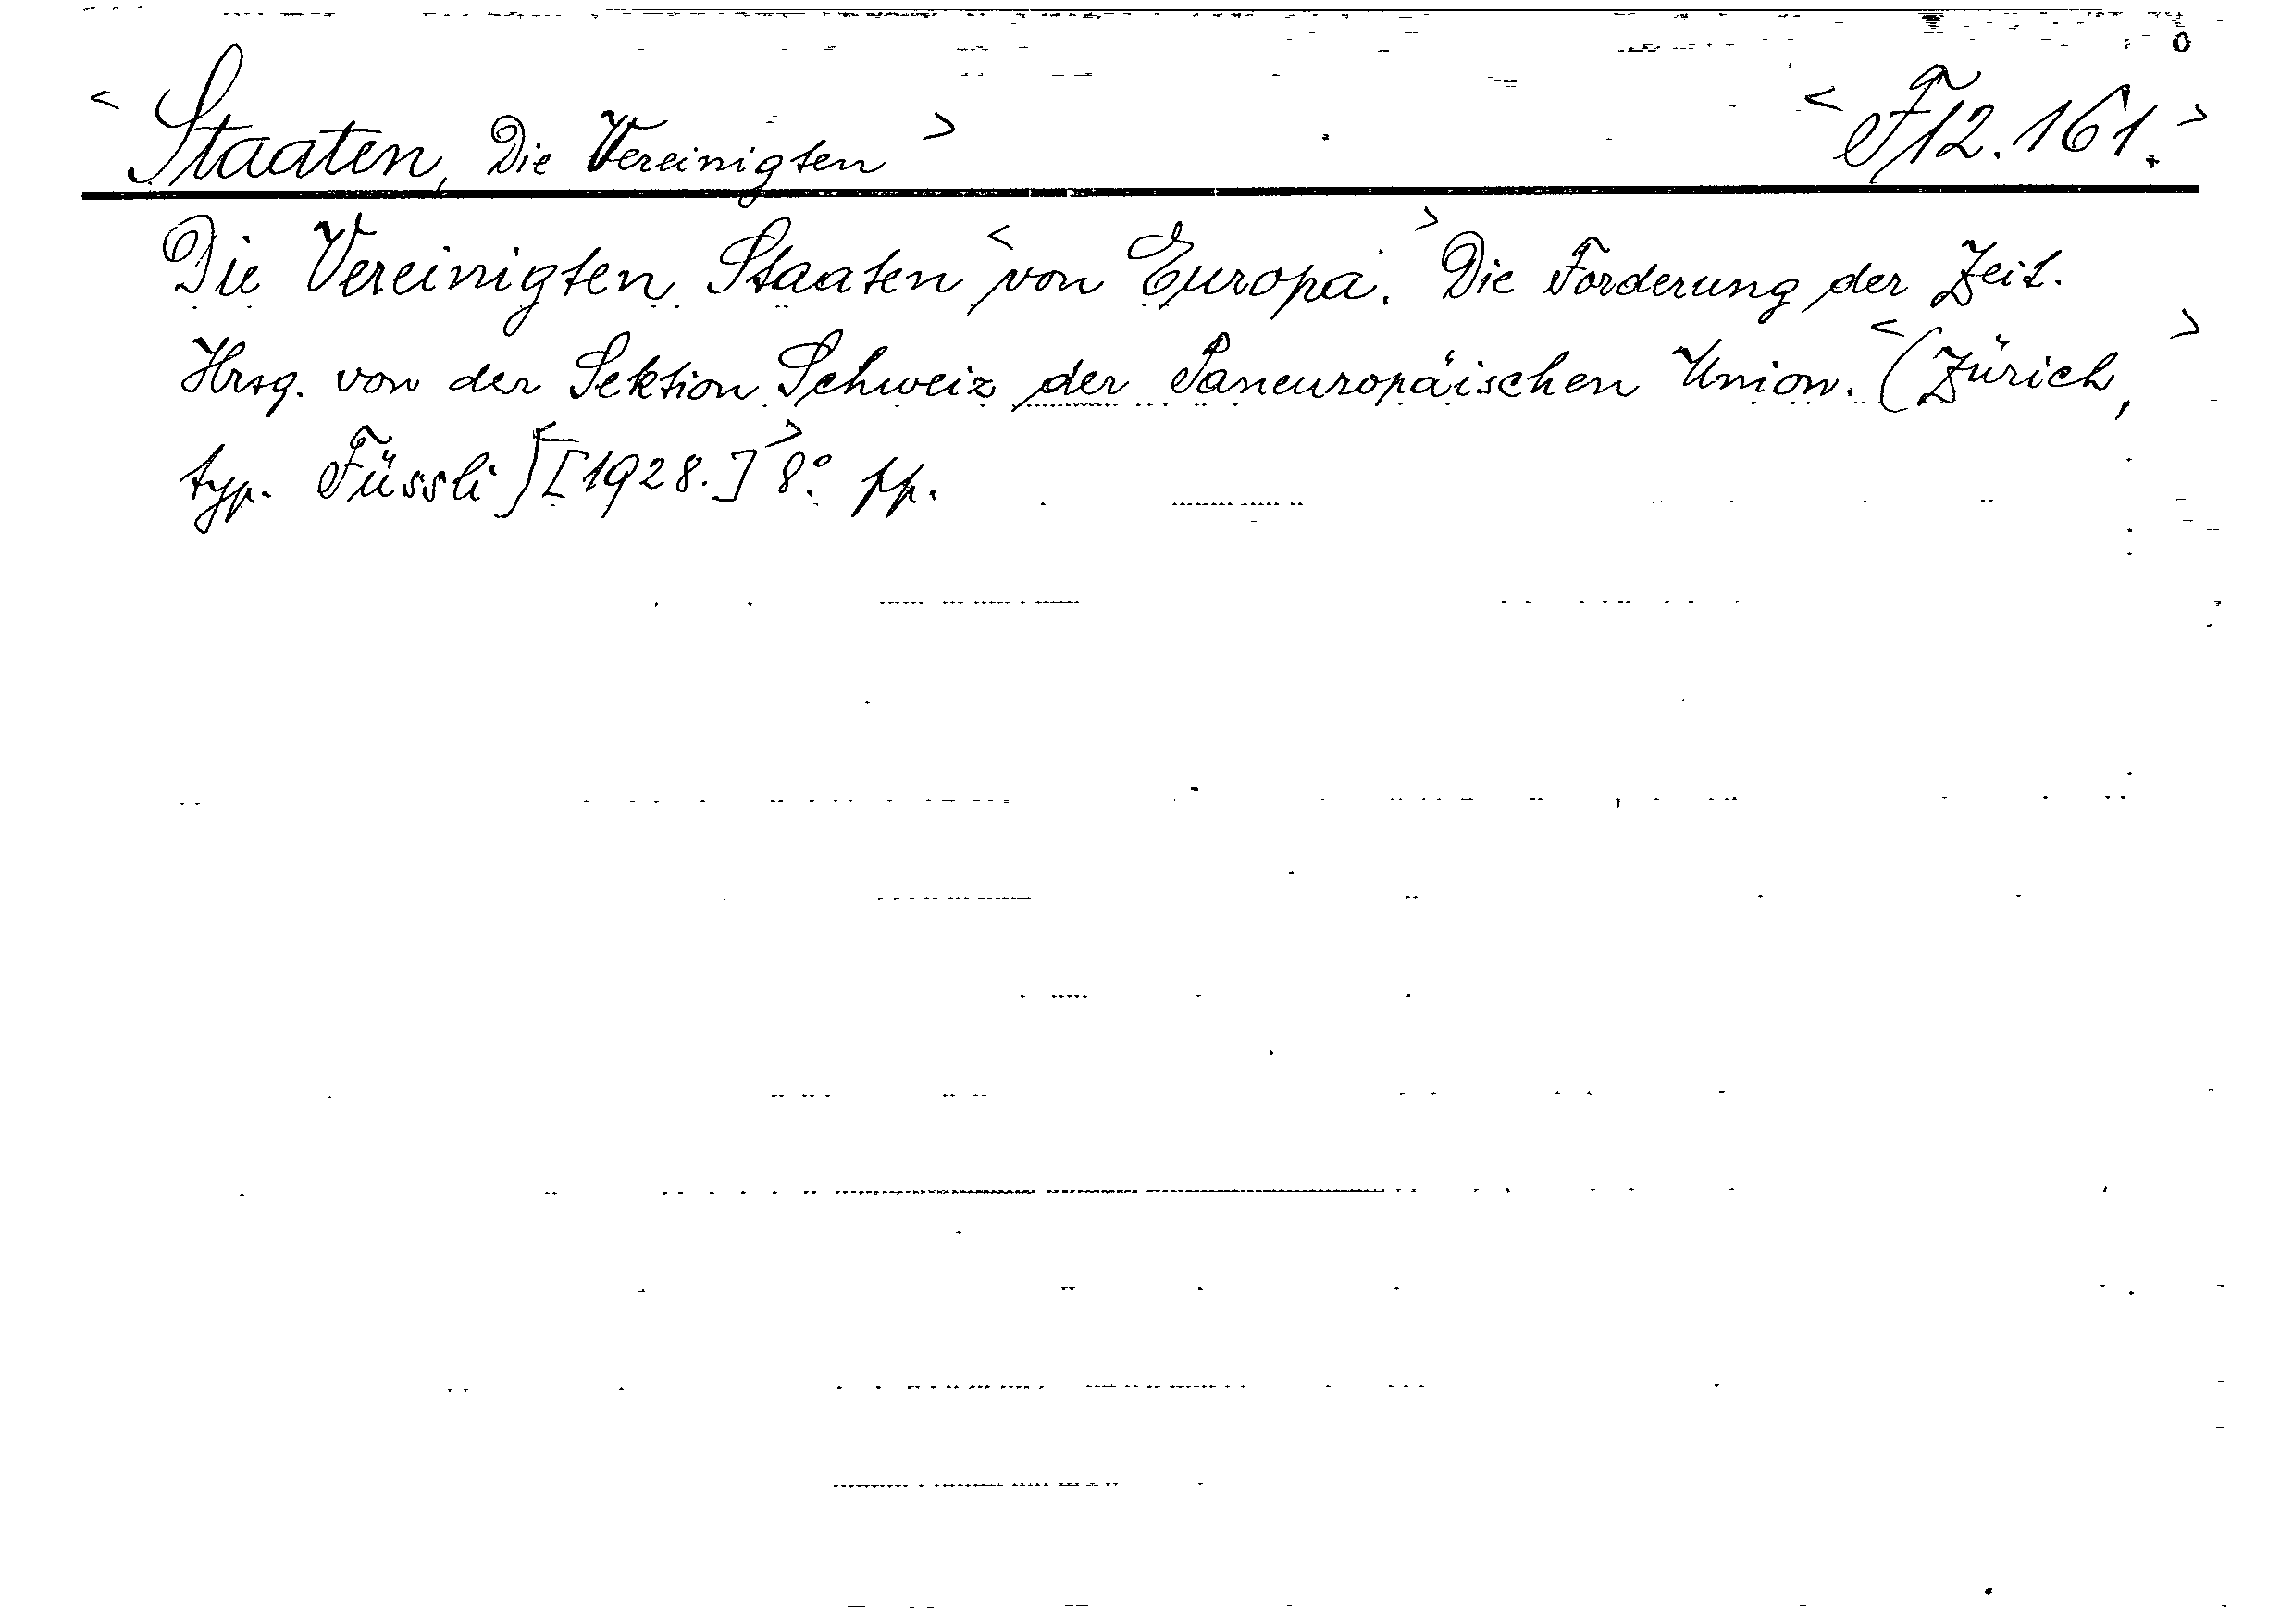 <Staaten, Die Vereinigten> <F12.161.>
Die Vereinigten Staaten <von Europa.> Die Forderung der Zeit.
Hrsg. von der Sektion Schweiz der Paneuropäischen Union. <(Zürich,>
typ. Füssli) <[1928.]> 8° pp.